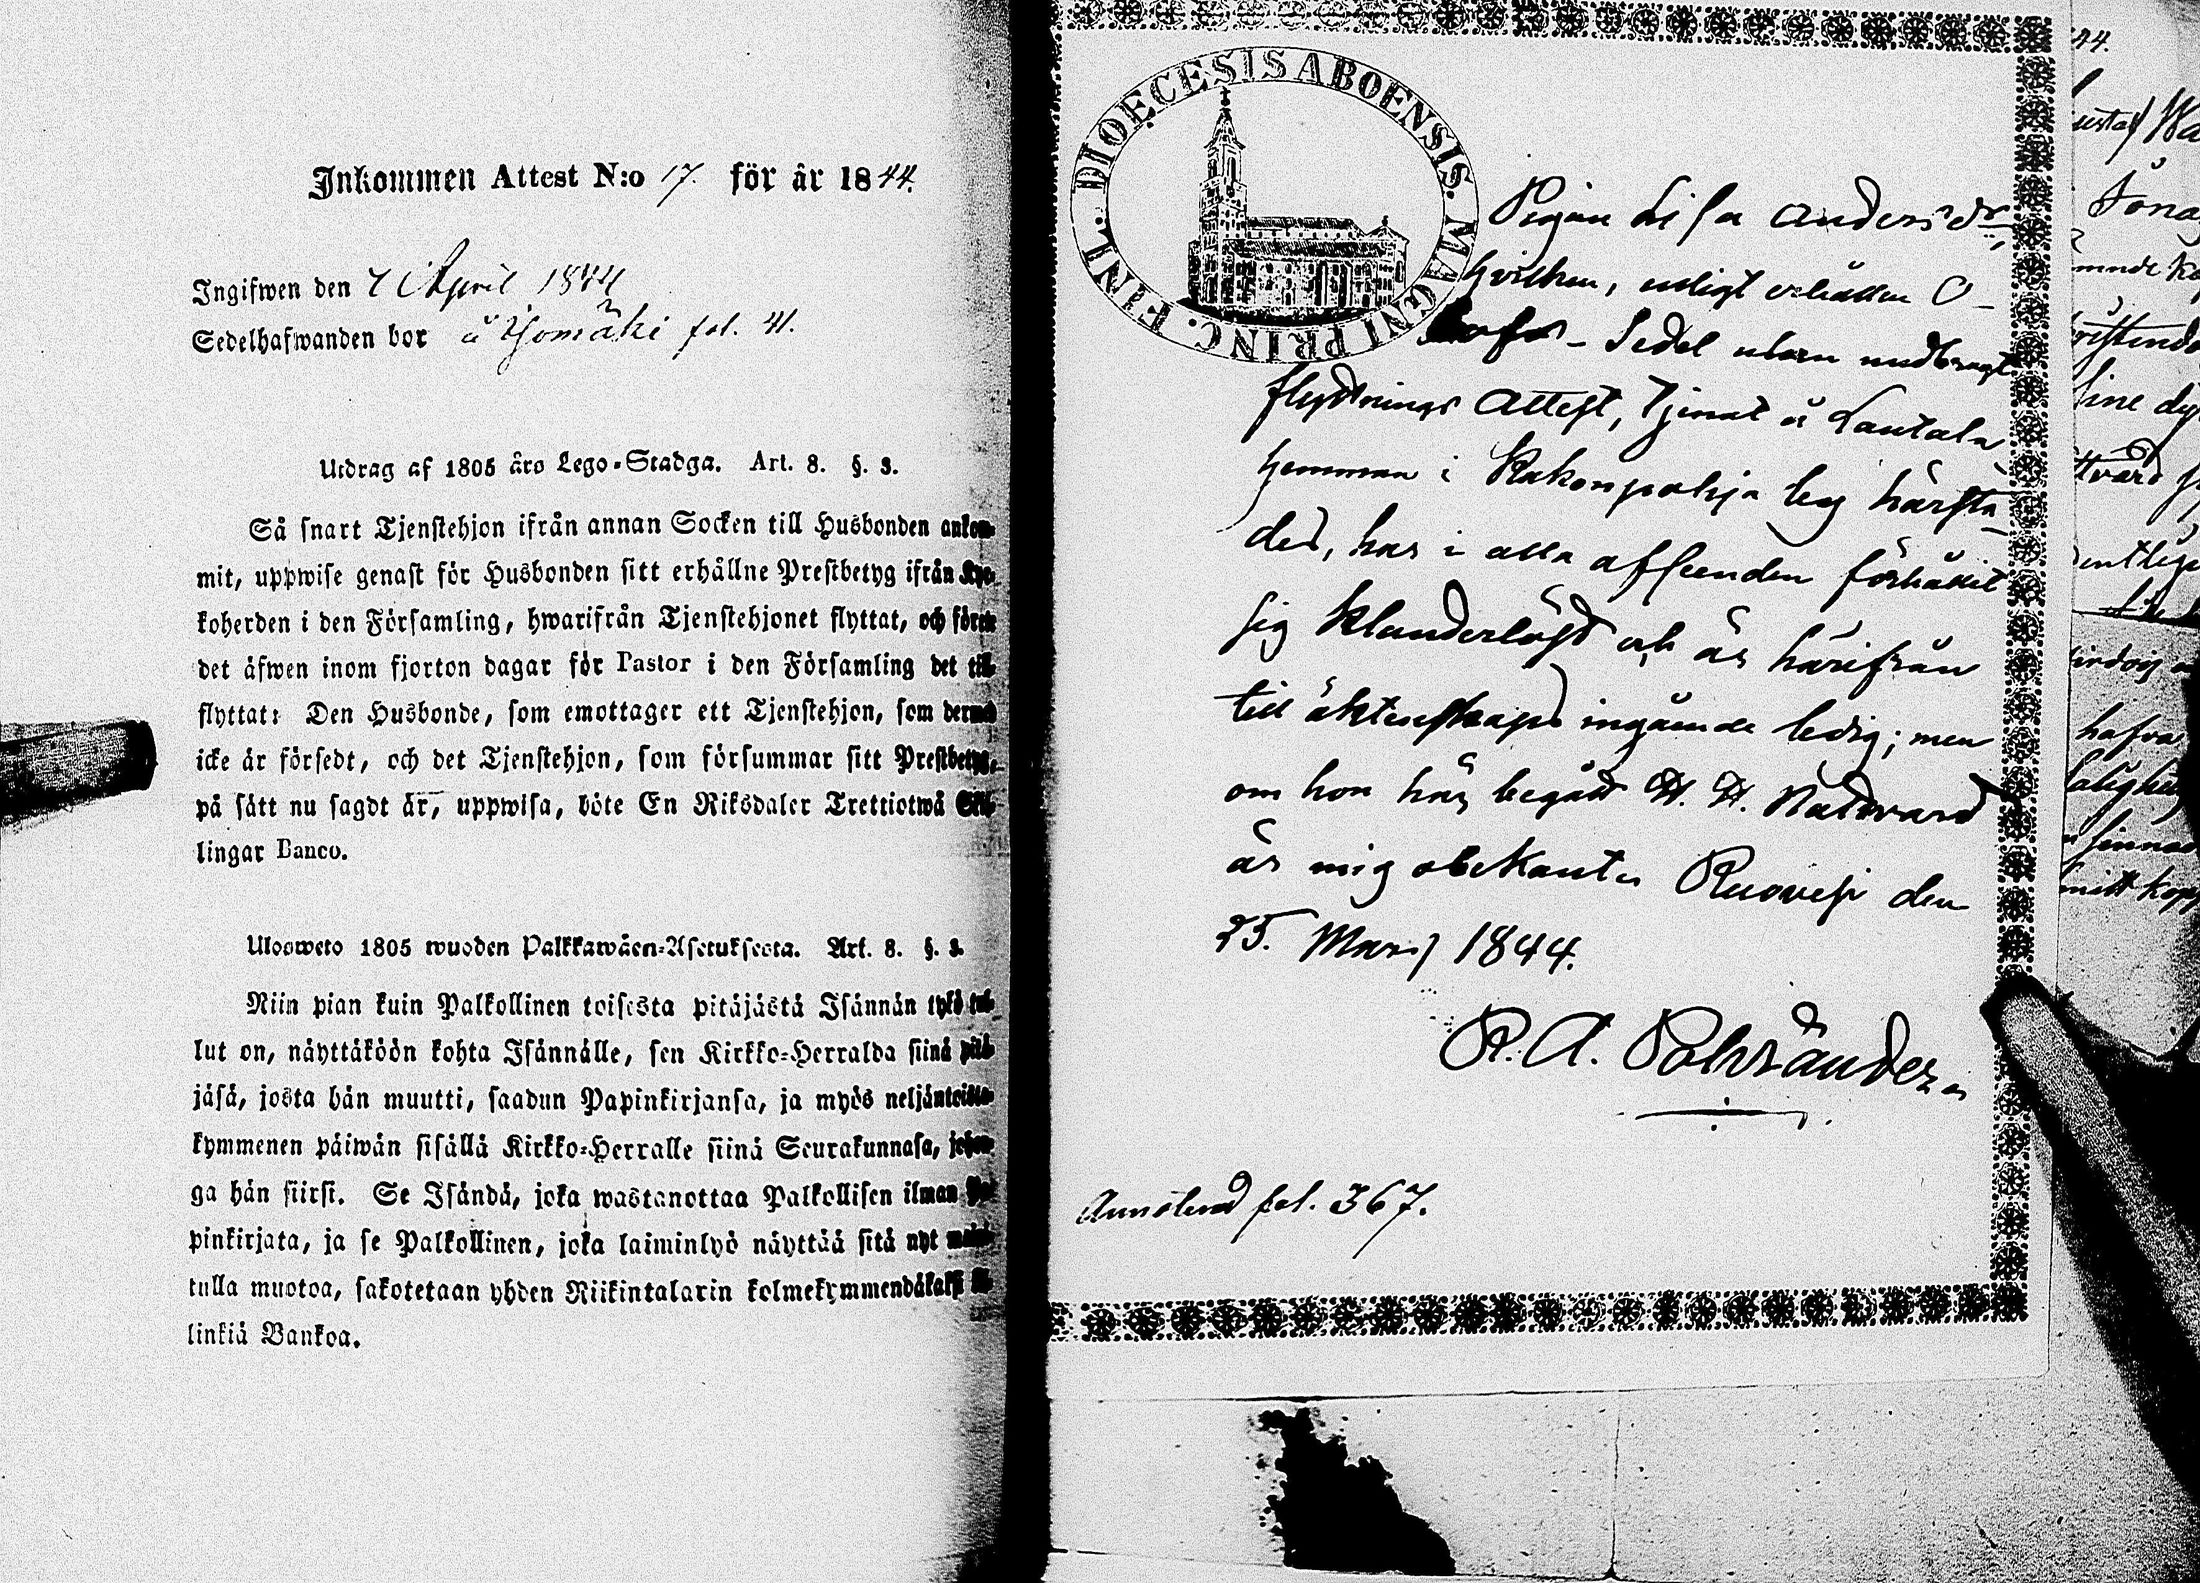 Inkommen Attest N:o 17. för år 1844.
Ingifwen den 7 April 1844
Sedelhafwanden bor å Isomäki fol. 41.
Utdrag af 1805 års Lego-Stadga. Art. 8. §. 3.
Så snart Tjenstehjon ifrån annan Socken till Husbonden ankom-
mit, uppwise genast för Husbonden sitt erhållne Prestbetyg ifrån Kyr-
koherden i den Församling, hwarifrån Tjenstehjonet flyttat, och förete
det äfwen inom fjorton dagar för Pastor i den Församling det till-
flyttat: Den Husbonde, som emottager ett Tjenstehjon, som dermed
icke är försedt, och det Tjenstehjon, som försummar sitt Prestbetyg,
på sätt nu sagdt är, uppwisa, böte En Riksdaler Trettiotwå Skil-
lingar Banco.
Ulosweto 1805 wuoden Palkkawäen-Asetuksesta. Art. 8. §. 3.
Niin pian kuin Palkollinen toisesta pitäjästä Isännän tykö tul-
lut on, näyttäköön kohta Isännälle, sen Kirkko-Herralda siinä pitä-
jäsä, josta hän muutti, saadun Papinkirjansa, ja myös neljäntoista-
kymmenen päiwän sisällä Kirkko-Herralle siinä Seurakunnasa, johon-
ga hän siirsi. Se Isändä, joka wastanottaa Palkollisen ilman Pa-
pinkirjata, ja se Palkollinen, joka laiminlyö näyttää sitä nyt maini-
tulla muotoa, sakotetaan yhden Riikintalarin kolmekymmendäkaksi kil-
linkiä Bankoa.
FINL. DIOECESIS ABOENSIS. MAGNI PRINC.
Pigan Lisa Andersdr
hvilken, enligt erhållen O-
- Sedel utan medbragt
flyttnings Attest, tjenat å Lautala
hemman i Kakonpohja by härstä-
des, har i alla afseenden förhållit
sig klanderlöst och är härifrån
till äktenskaps ingående ledig; men
om hon här begått H. H. Nattvard
är mig obekant. Ruovesi den
25. Mars 1844.
R. A. Pohlränder
Annoterad fol. 367.